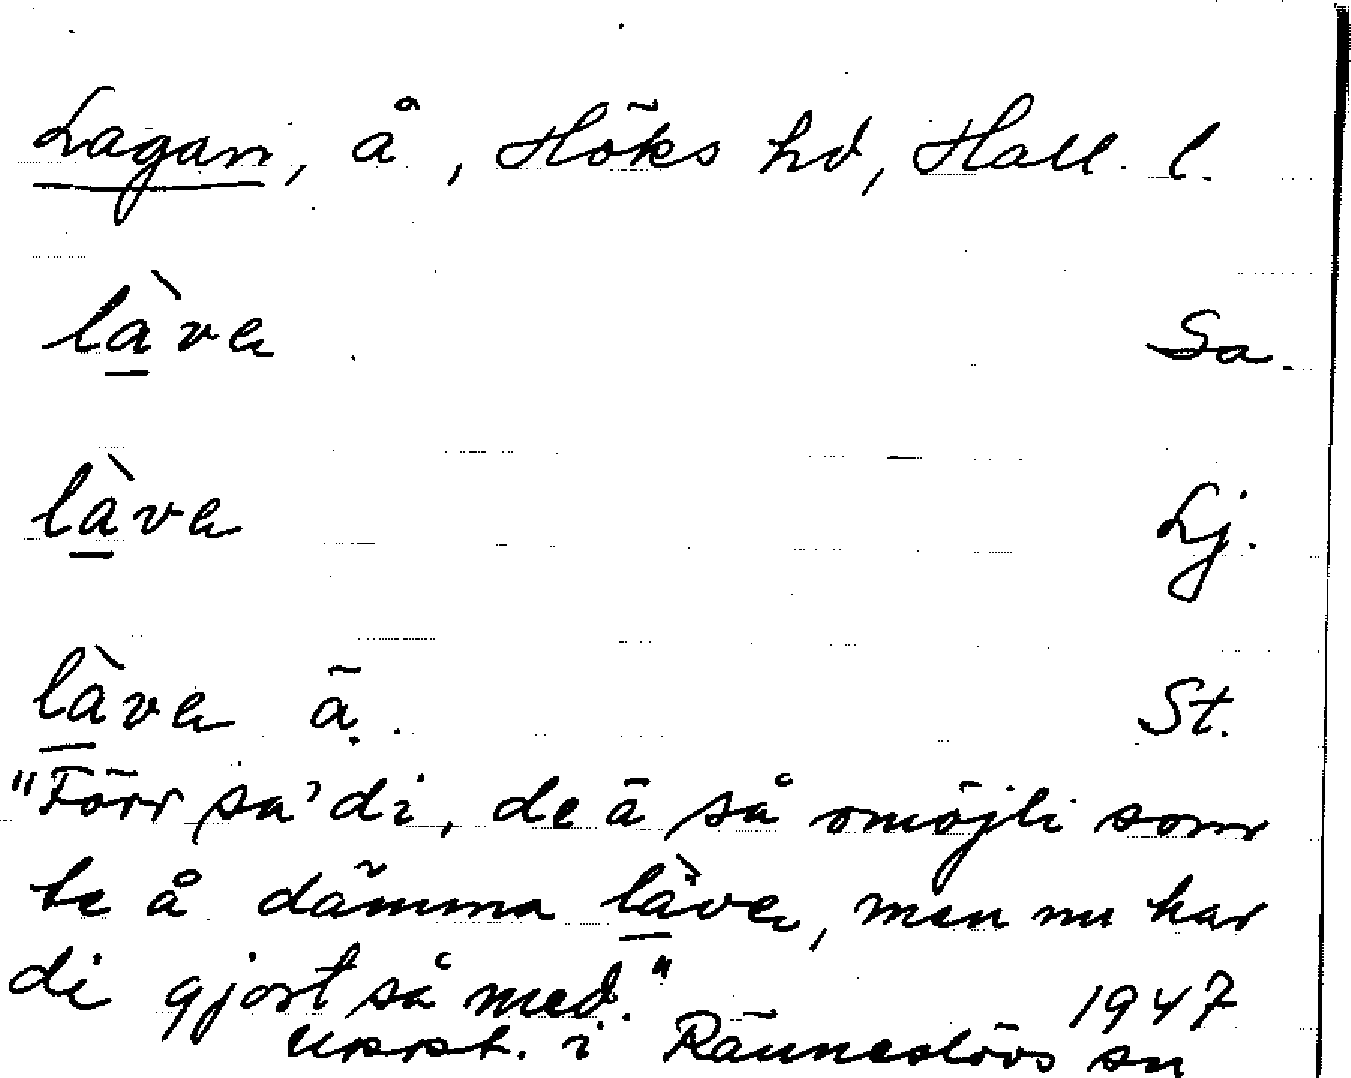 Lagan, å, Höks hd, Hall. l.
làven Sa.
làven Lj.
làven ā. St.
"Förr sa' di, de ä så omöjli som
te å dämma làven, men nu har
di gjort så med." 1947
Uppt. i Ränneslövs sn